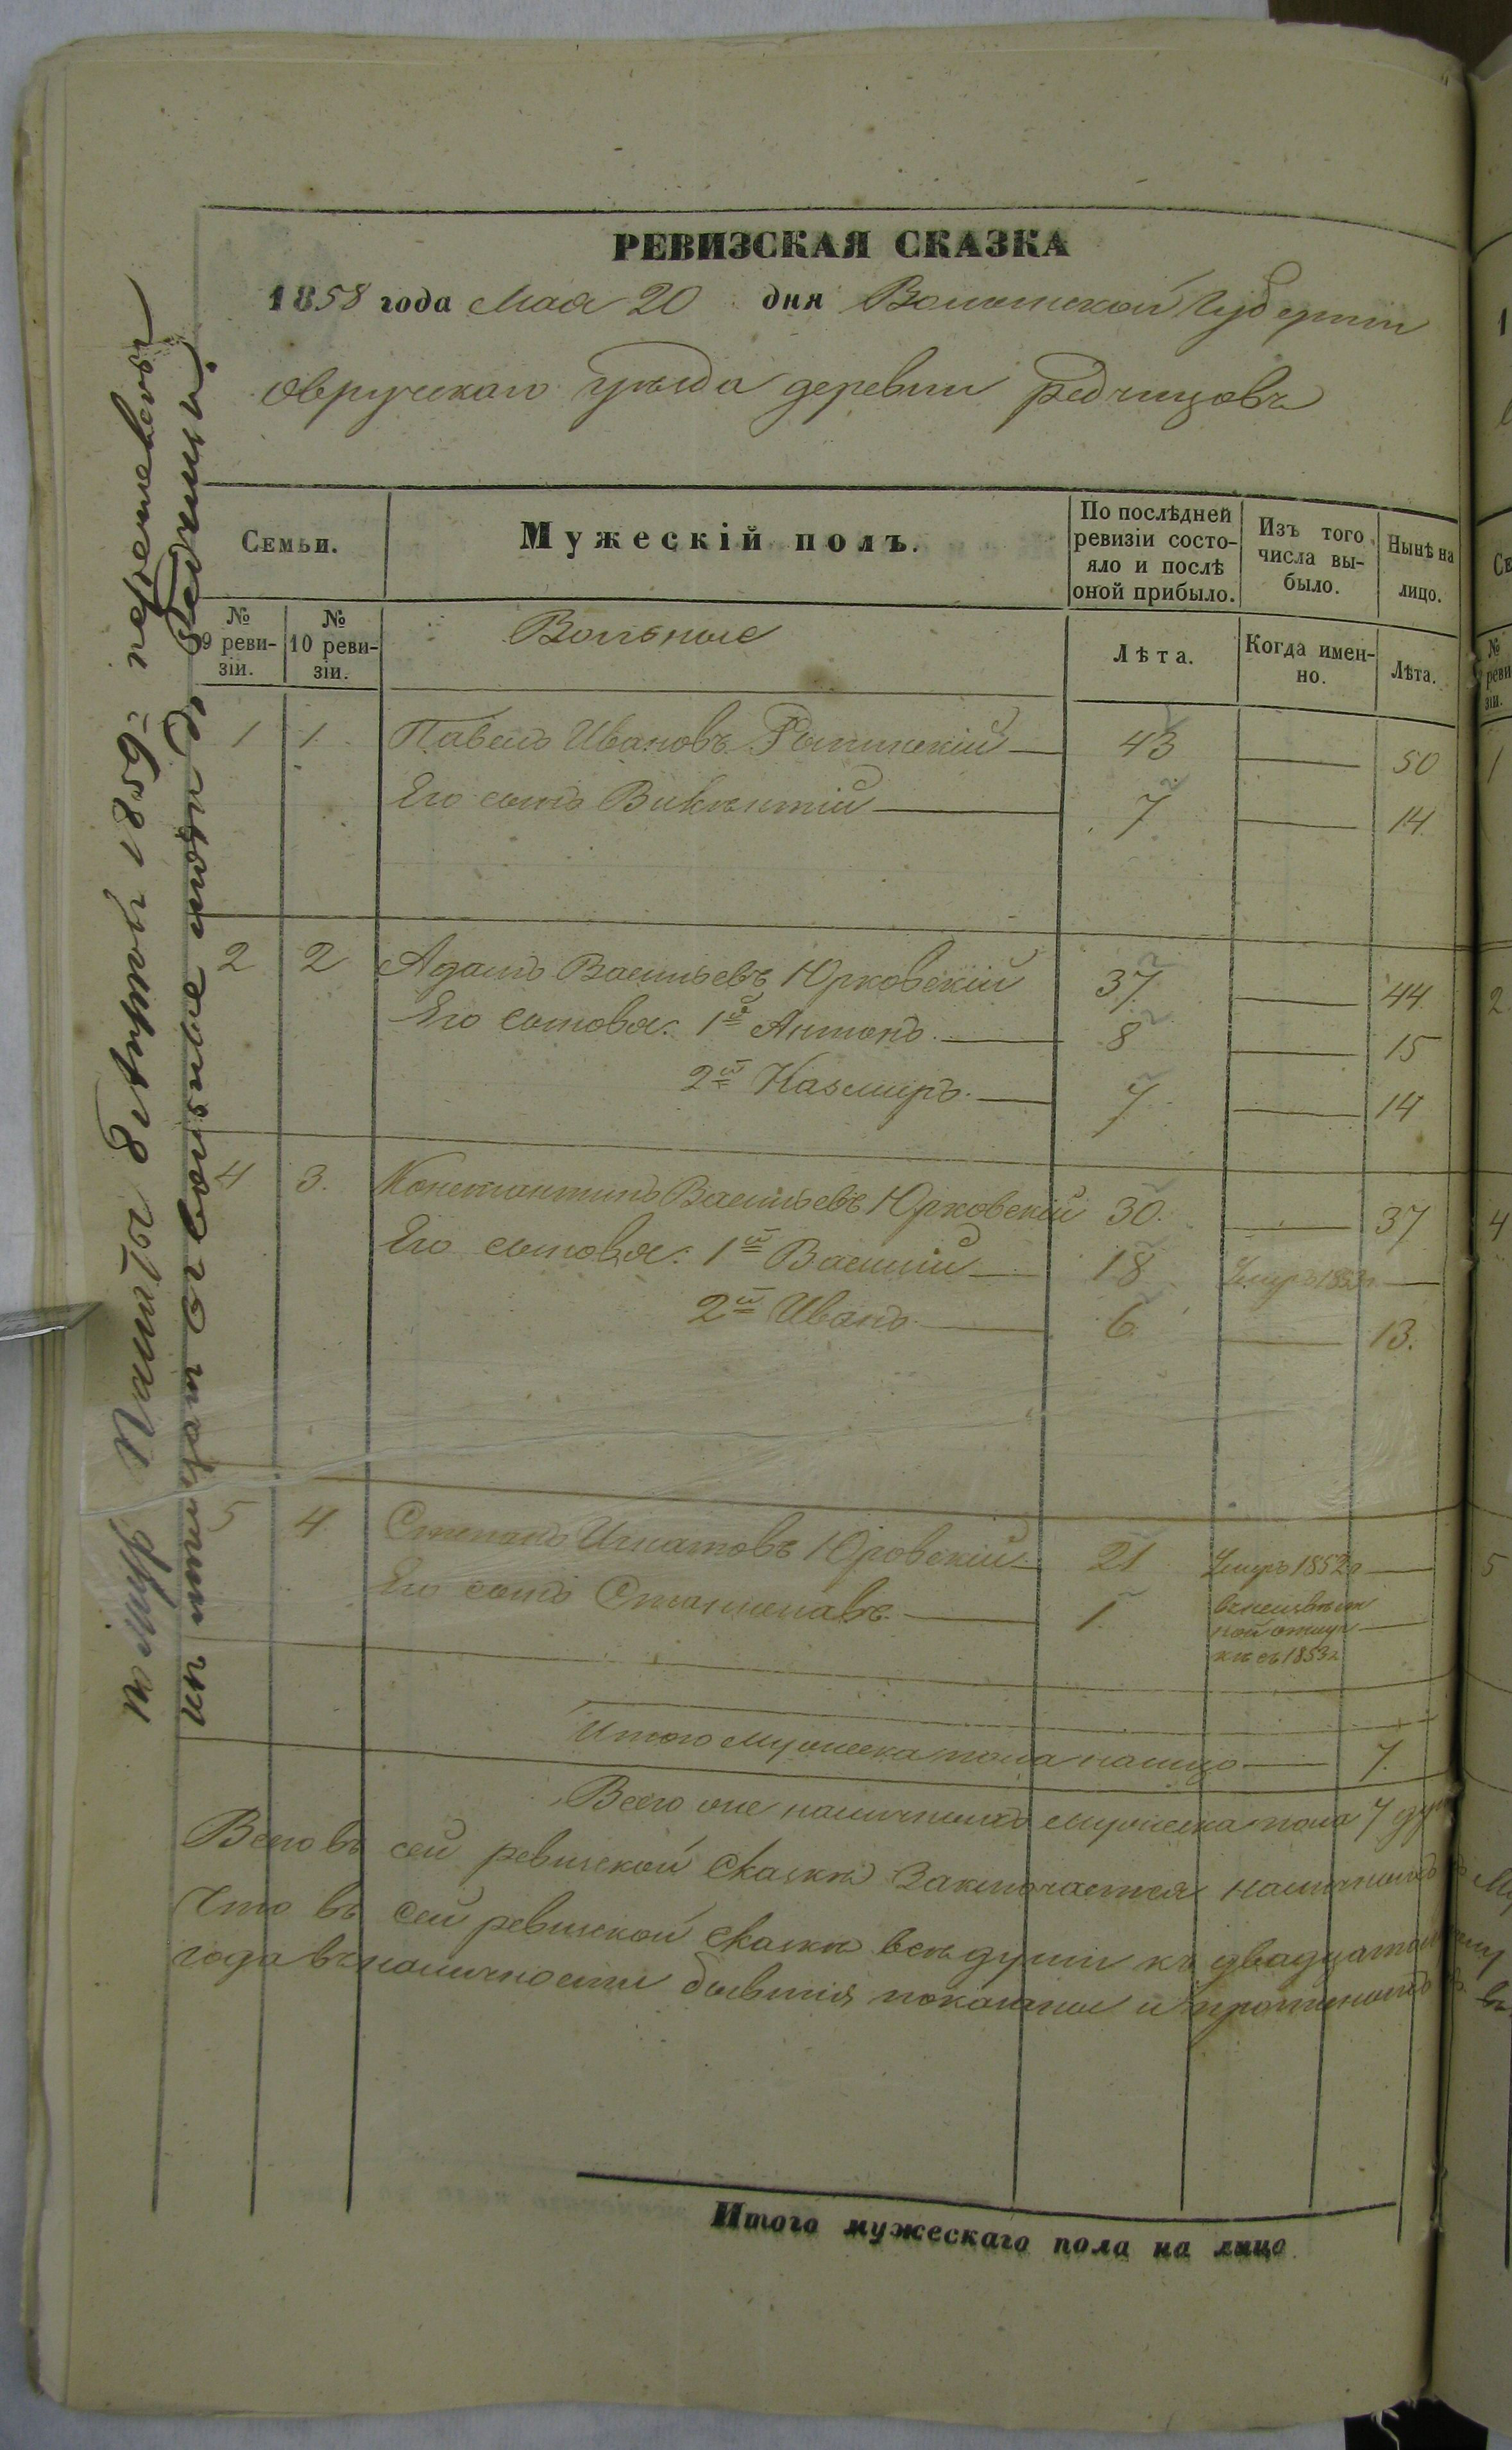 РЕВИЗСКАЯ СКАЗКА
1858 года Мая 20 дня Волынской Губернiи
Овручскаго уѣзда деревни Редчицовъ
Семьи.
Мужескій полъ.
По послѣдней ревизіи состо-яло и послѣ оной прибыло.
Изъ того числа вы-было.
Нынѣ на лицо.
№ 9 реви-зіи.
№ 10 реви-зіи.
Вольные
Лѣта.
Когда имен-но.
Лѣта.
1 1 Павелъ Ивановъ 43 50
Его сынъ Викентій 7 14
2 2 Адамъ Васильевъ Юрковскій 37 44
Его сыновья: 1й Антонъ. 8 15
2й Казимиръ. 7 14
4 3. Константинъ Васильевъ Юрковскій 30. 37
Его сыновья: 1й Василій 18 Умеръ 1853г.
2й Иванъ 6 13.
5 4 Степанъ Игнатовъ Юровскій 21 Умеръ 1852г
Его сынъ Станиславъ. 1. въ неизвѣстной отлучкѣ съ 1853г
Итого мужеска пола налицо 7.
Всего же наличныхъ мужеска пола 7 душ
Всего въ сей ревизской сказкѣ заключается наличныхъ
Что въ сей ревизской сказкѣ всѣ души къ двадцатому
года въ наличности бывшія показаны и
Итого мужескаго пола на лицо
1859=
вольные люди